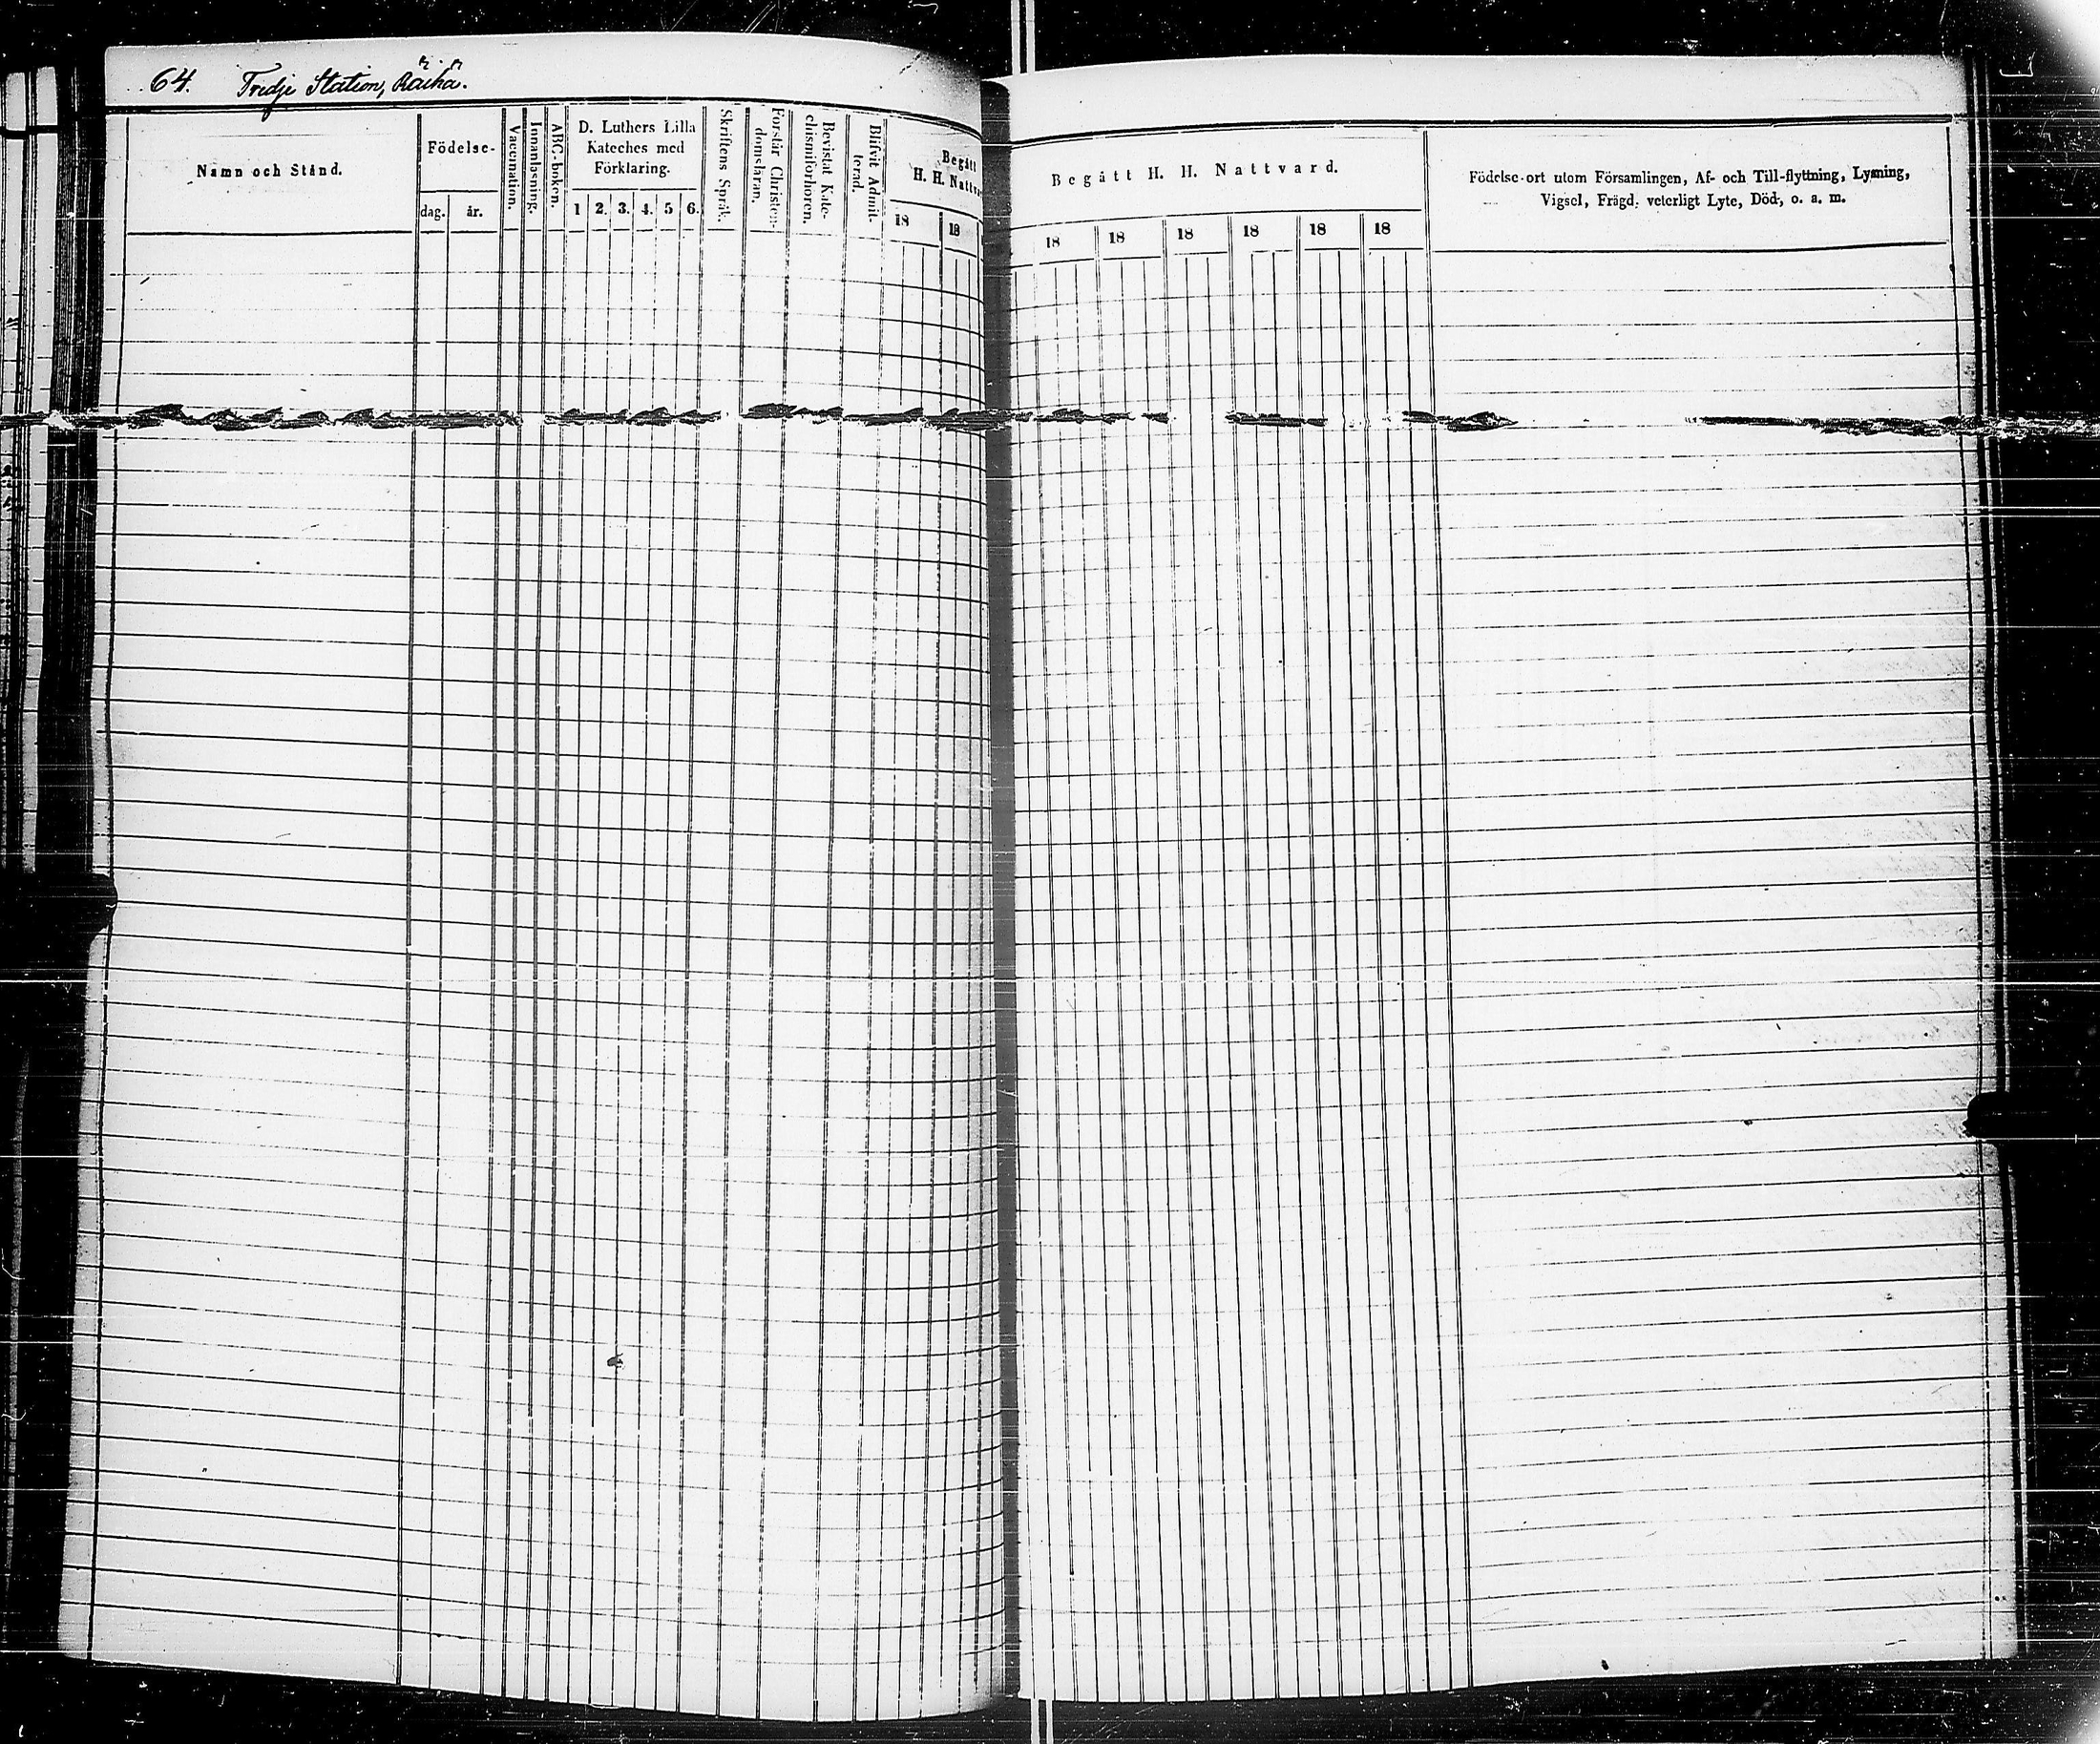 64. Tredje Station, Räihä.
Namn och Stånd.
Födelse-
dag.
år.
Vaccination.
Innanläsning.
ABC-boken.
D. Luthers Lilla
Kateches med
Förklaring.
1 2. 3. 4. 5 6.
Skriftens Språk.
Förstår Christen-
domsläran.
Bevistat Kate-
chismiförhören.
Blifvit Admit-
terad.
Begått
H. H. Nattv
18 18
Begått H. H. Nattvard.
18 18 18 18 18 18
Födelse-ort utom Församlingen, Af- och Till-flyttning, Lysning,
Vigsel, Frägd, veterligt Lyte, Död, o. a. m.